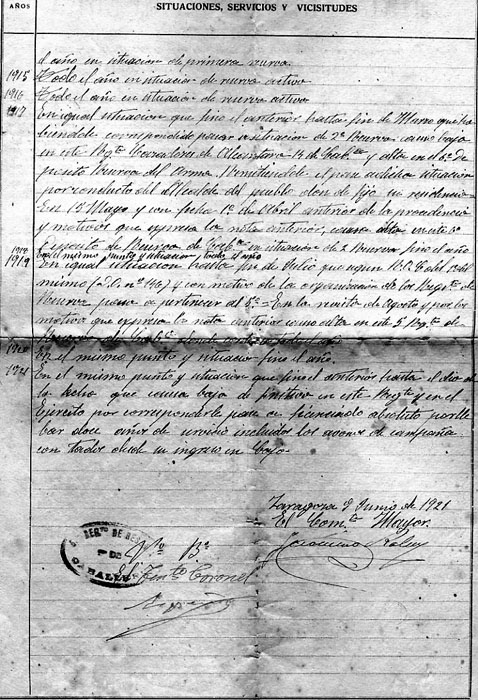 AÑOS
SITUACIONES, SERVICIOS Y VICISITUDES
el año en situacion de primera reserva
1915 Todo el año en situacion de reserva activa
1916 Todo el año en situacion de reserva activa
1917 En igual situacion que fino el anterior hasta fin de Marzo que ha
biendole correspondido pasar a situacion de 2ª Reserva causo baja
en este Regtº Cazadores de Alcantara 14 de Cabª y alta en el 6º de
posito Reserva del Arma Remitiendole el pase a dicha situacion
por conducto del Alcalde del pueblo don de fijo su residencia
En 13 Mayo y con fecha 1º de Abril anterior de la procedencia
y motivos que expresa la nota anterior, causa alta en este 6º
Deposito de Reserva de Cabª en situacion de 2 Reserva fino el año
1918 En el mismo punto y situacion todo el año
1919 En igual situacion hasta fin de Julio que segun R. O. C. del
mismo (D. O. nº 146) y con motivo de la organizacion de los Regtos de
Reserva pasa a pertenecer al 5º = En la revista de Agosto y por los
motivos que expresa la nota anterior causo alta en este 5 Regtº de
Reserva de
1920 En el mismo punto y situacion fino el año.
1921 En el mismo punto y situacion que fino el anterior hasta el dia de
la fecha que causa baja definitiva en este Regtº y en el
Ejército por corresponderle pase a licenciado absoluto por lle
bar doce años de servicio incluidos los abonos de campaña
con tados desde su ingreso en Caja.
Zaragoza 9 Junio de 1921
El Comte Mayor.
Vº Bº
El Tente Coronel